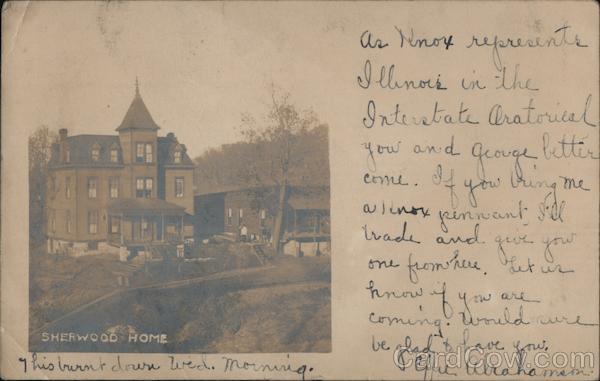 As Knox represents
Illinois in the
Interstate Oratorical
you and George better
come. If you bring me
a Knox pennant I'll
trade and give you
one from here. Let us
know if you are
coming. Would sure
be glad to have you.
Abrahamson.
SHERWOOD HOME
This burnt down Wed. Morning.
CardCow.com